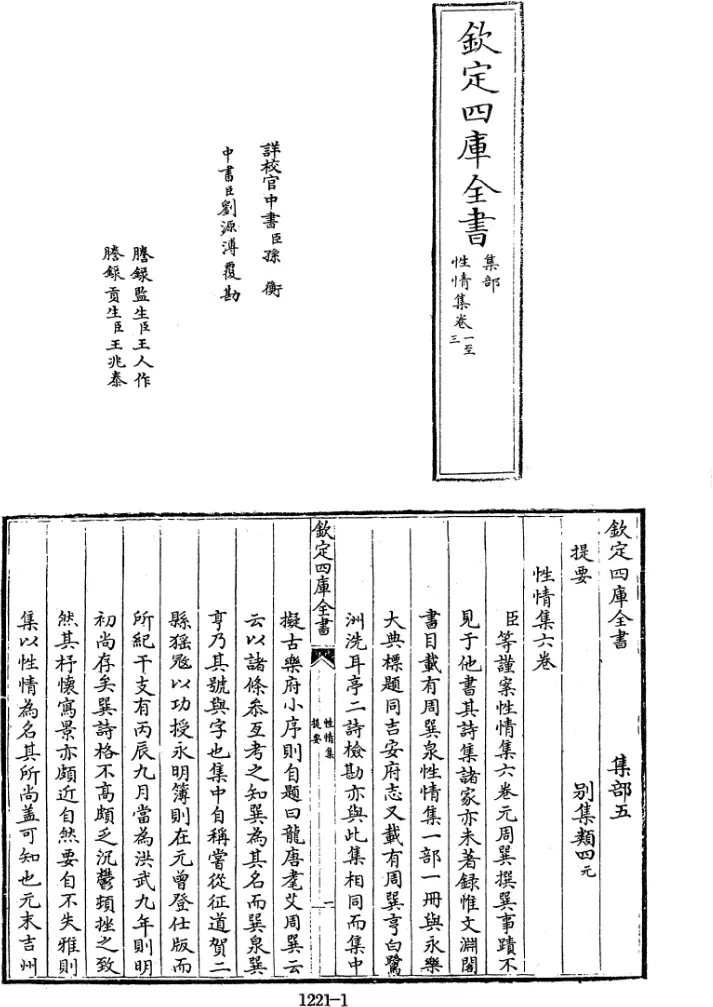 欽定四庫全書
集部
性情集卷一至三
詳校官中書臣孫衡
中書臣劉源溥覆勘
謄録監生臣王人作
謄録貢生臣王兆泰
欽定四庫全書 集部五
提要 別集類四元
性情集六卷
臣等謹案性情集六卷元周巽撰巽事蹟不
見于他書其詩集諸家亦未著録惟文淵閣
書目載有周巽泉性情集一部一冊與永樂
大典標題同吉安府志又載有周巽亨白鷺
洲洗耳亭二詩檢勘亦與此集相同而集中
欽定四庫全書
性情集
提要
一
擬古樂府小序則自題曰龍唐耄艾周巽云
云以諸條叅互考之知巽為其名而巽泉巽
亨乃其號與字也集中自稱嘗從征道賀二
縣猺𡨥以功授永明簿則在元曽登仕版而
所紀干支有丙辰九月當為洪武九年則明
初尚存矣巽詩格不髙頗乏沉鬱頓挫之致
然其抒懐寫景亦頗近自然要自不失雅則
集以性情為名其所尚葢可知也元末吉州
1221-1